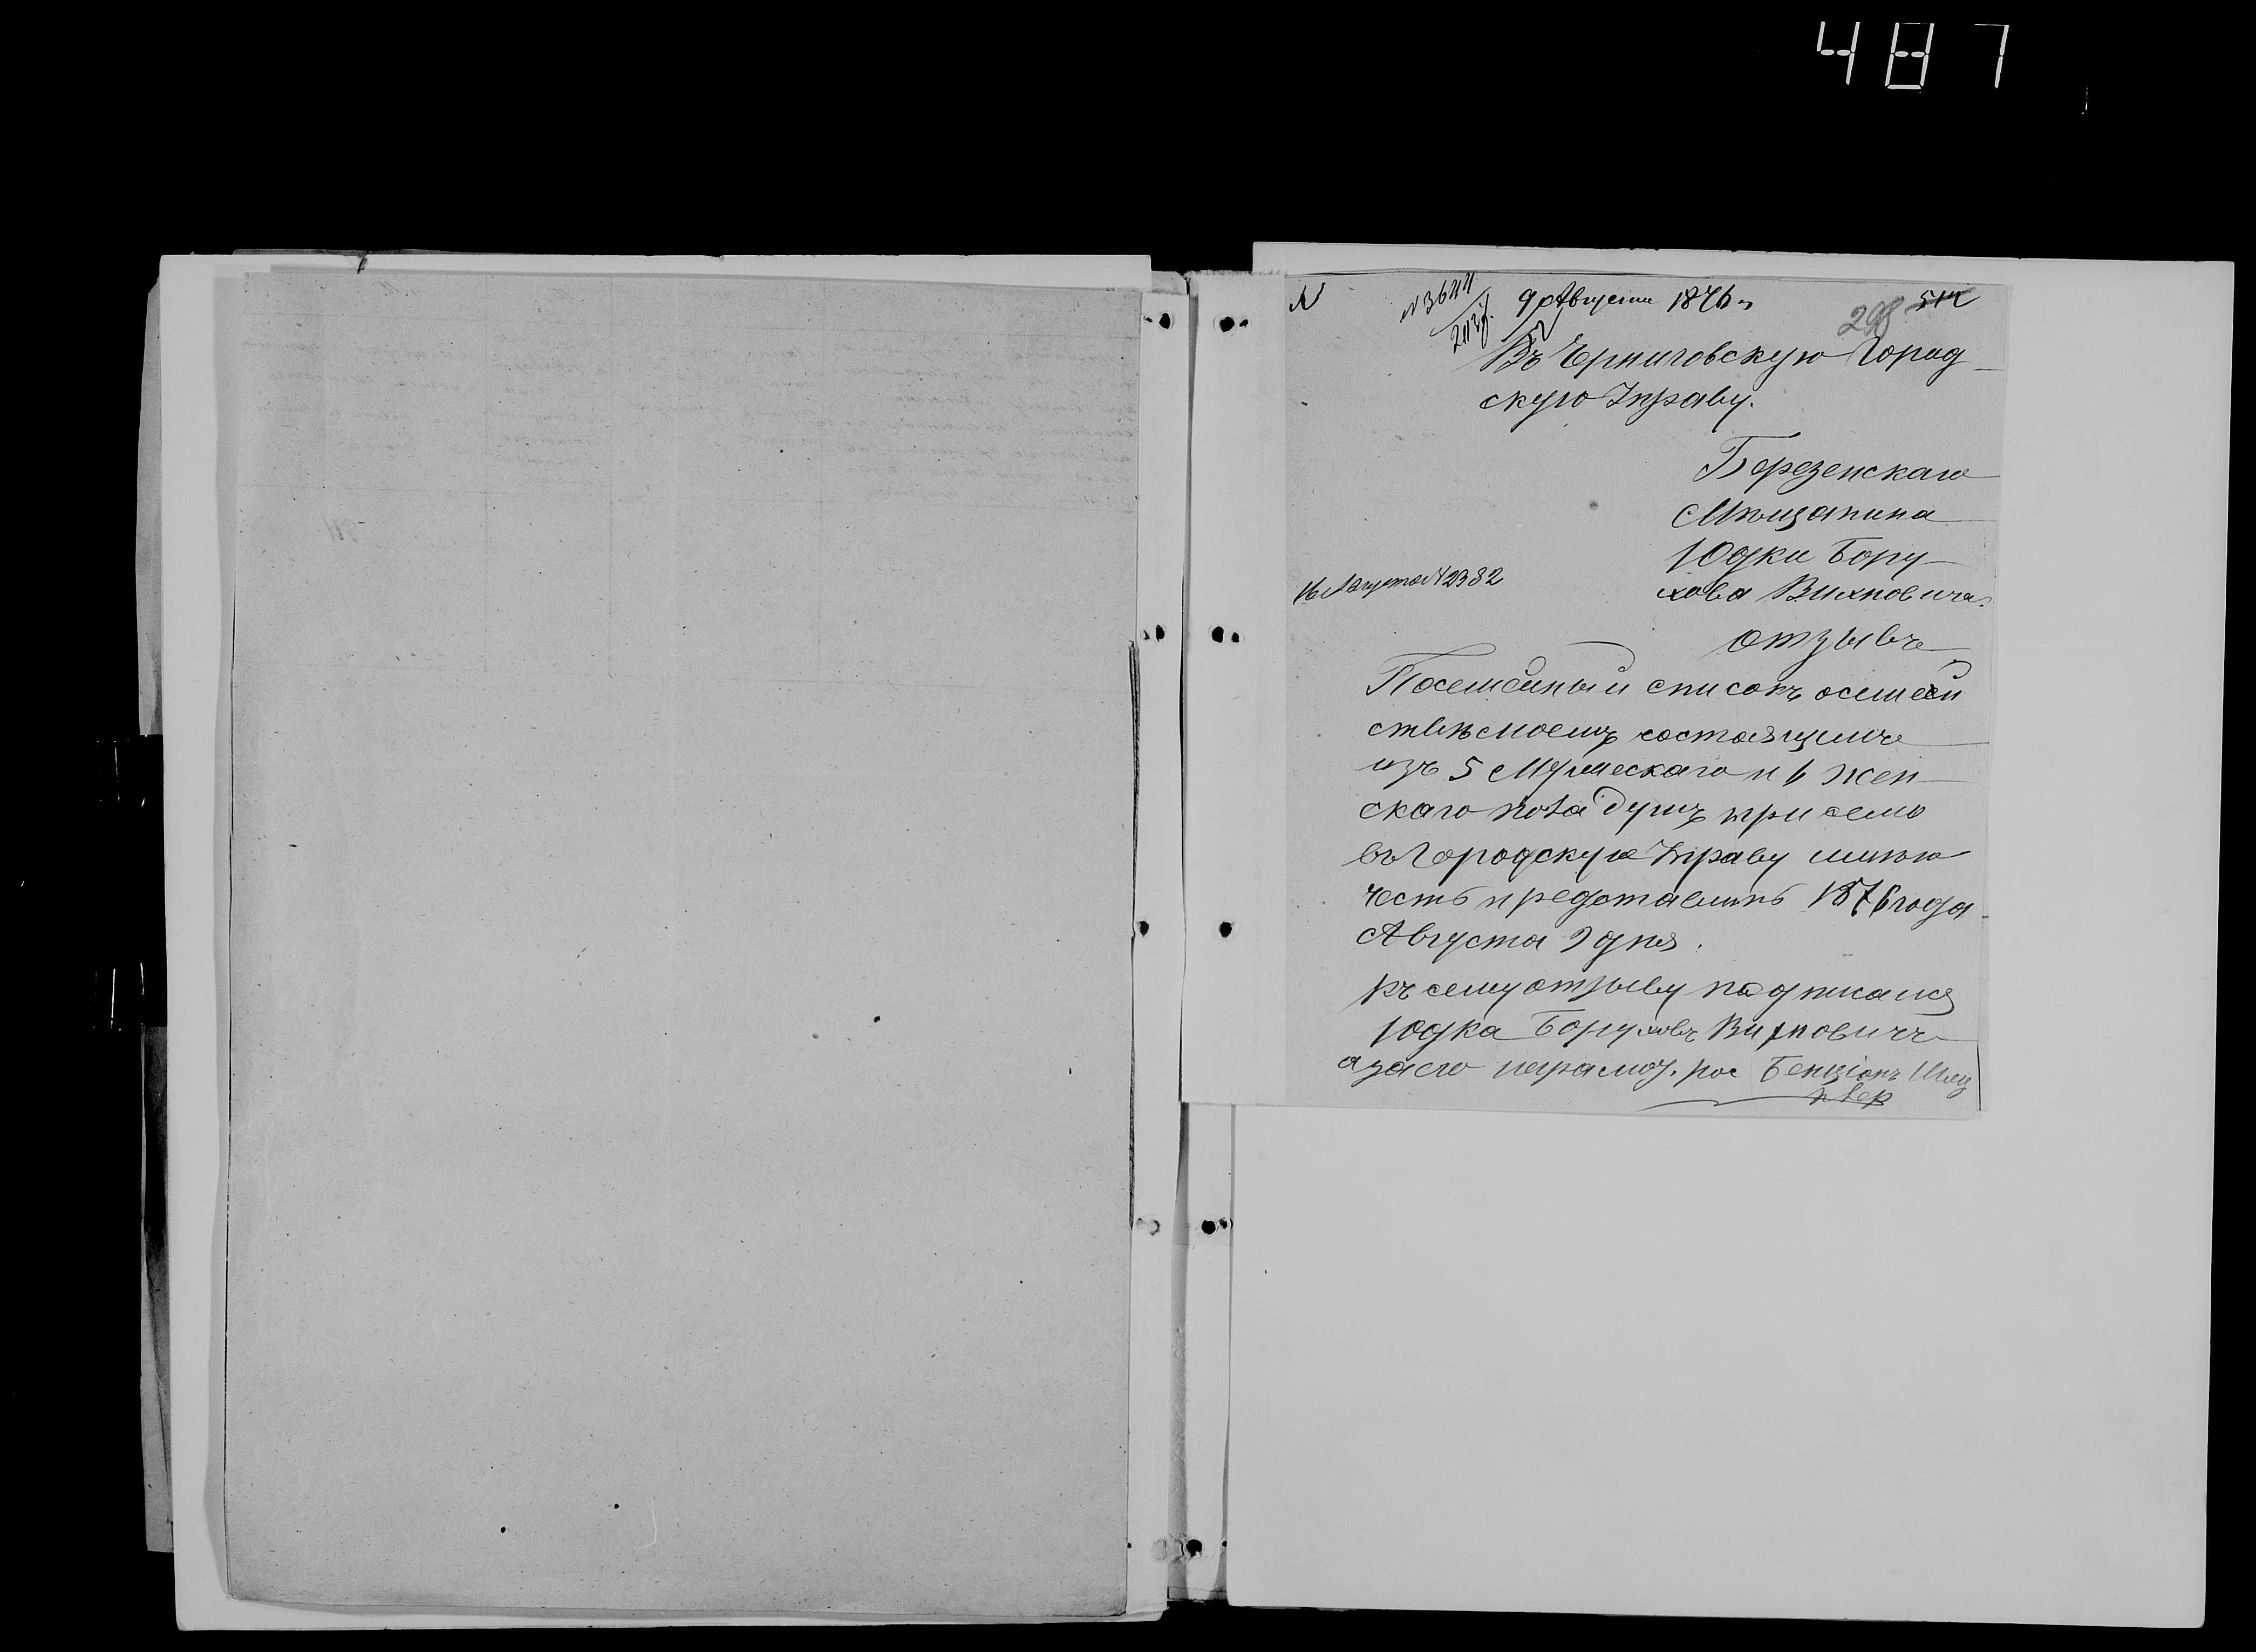 487
N
9 Августа 1876 г
Въ Черниговскую Город
скую Управу.
Березенскаго
Мѣщанина
Юдки Бору
хова Вихновича
16 Августа N 2382
отзывъ
Посемейный списокъ осемей
ствѣ моемъ состоящемъ
изъ 5 Мужескаго и 6 жен
скаго пола душъ при семъ
въ Городскую Управу имѣю
честь представить 1876 года
Августа 9 дня.
къ сему отзыву подписался
Юдка Боруховъ Вихновичъ
а заего неграмот. рос Бенціонъ